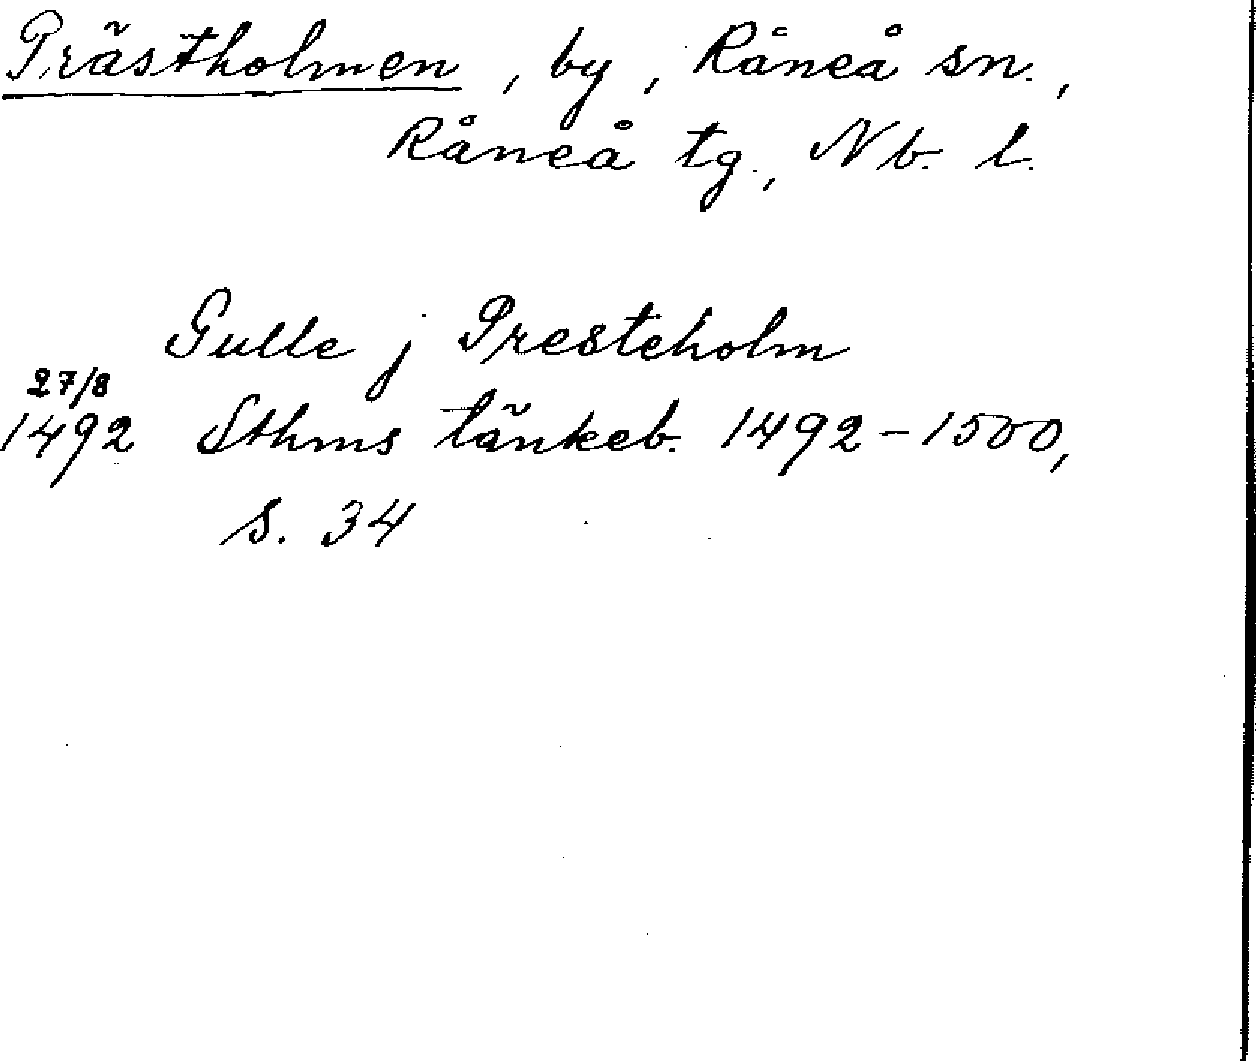 Prästholmen, by, Råneå sn.,
Råneå tg., Nb. l.
Gulle j Presteholm
27/8
1492 Sthms tänkeb. 1492-1500,
s. 34